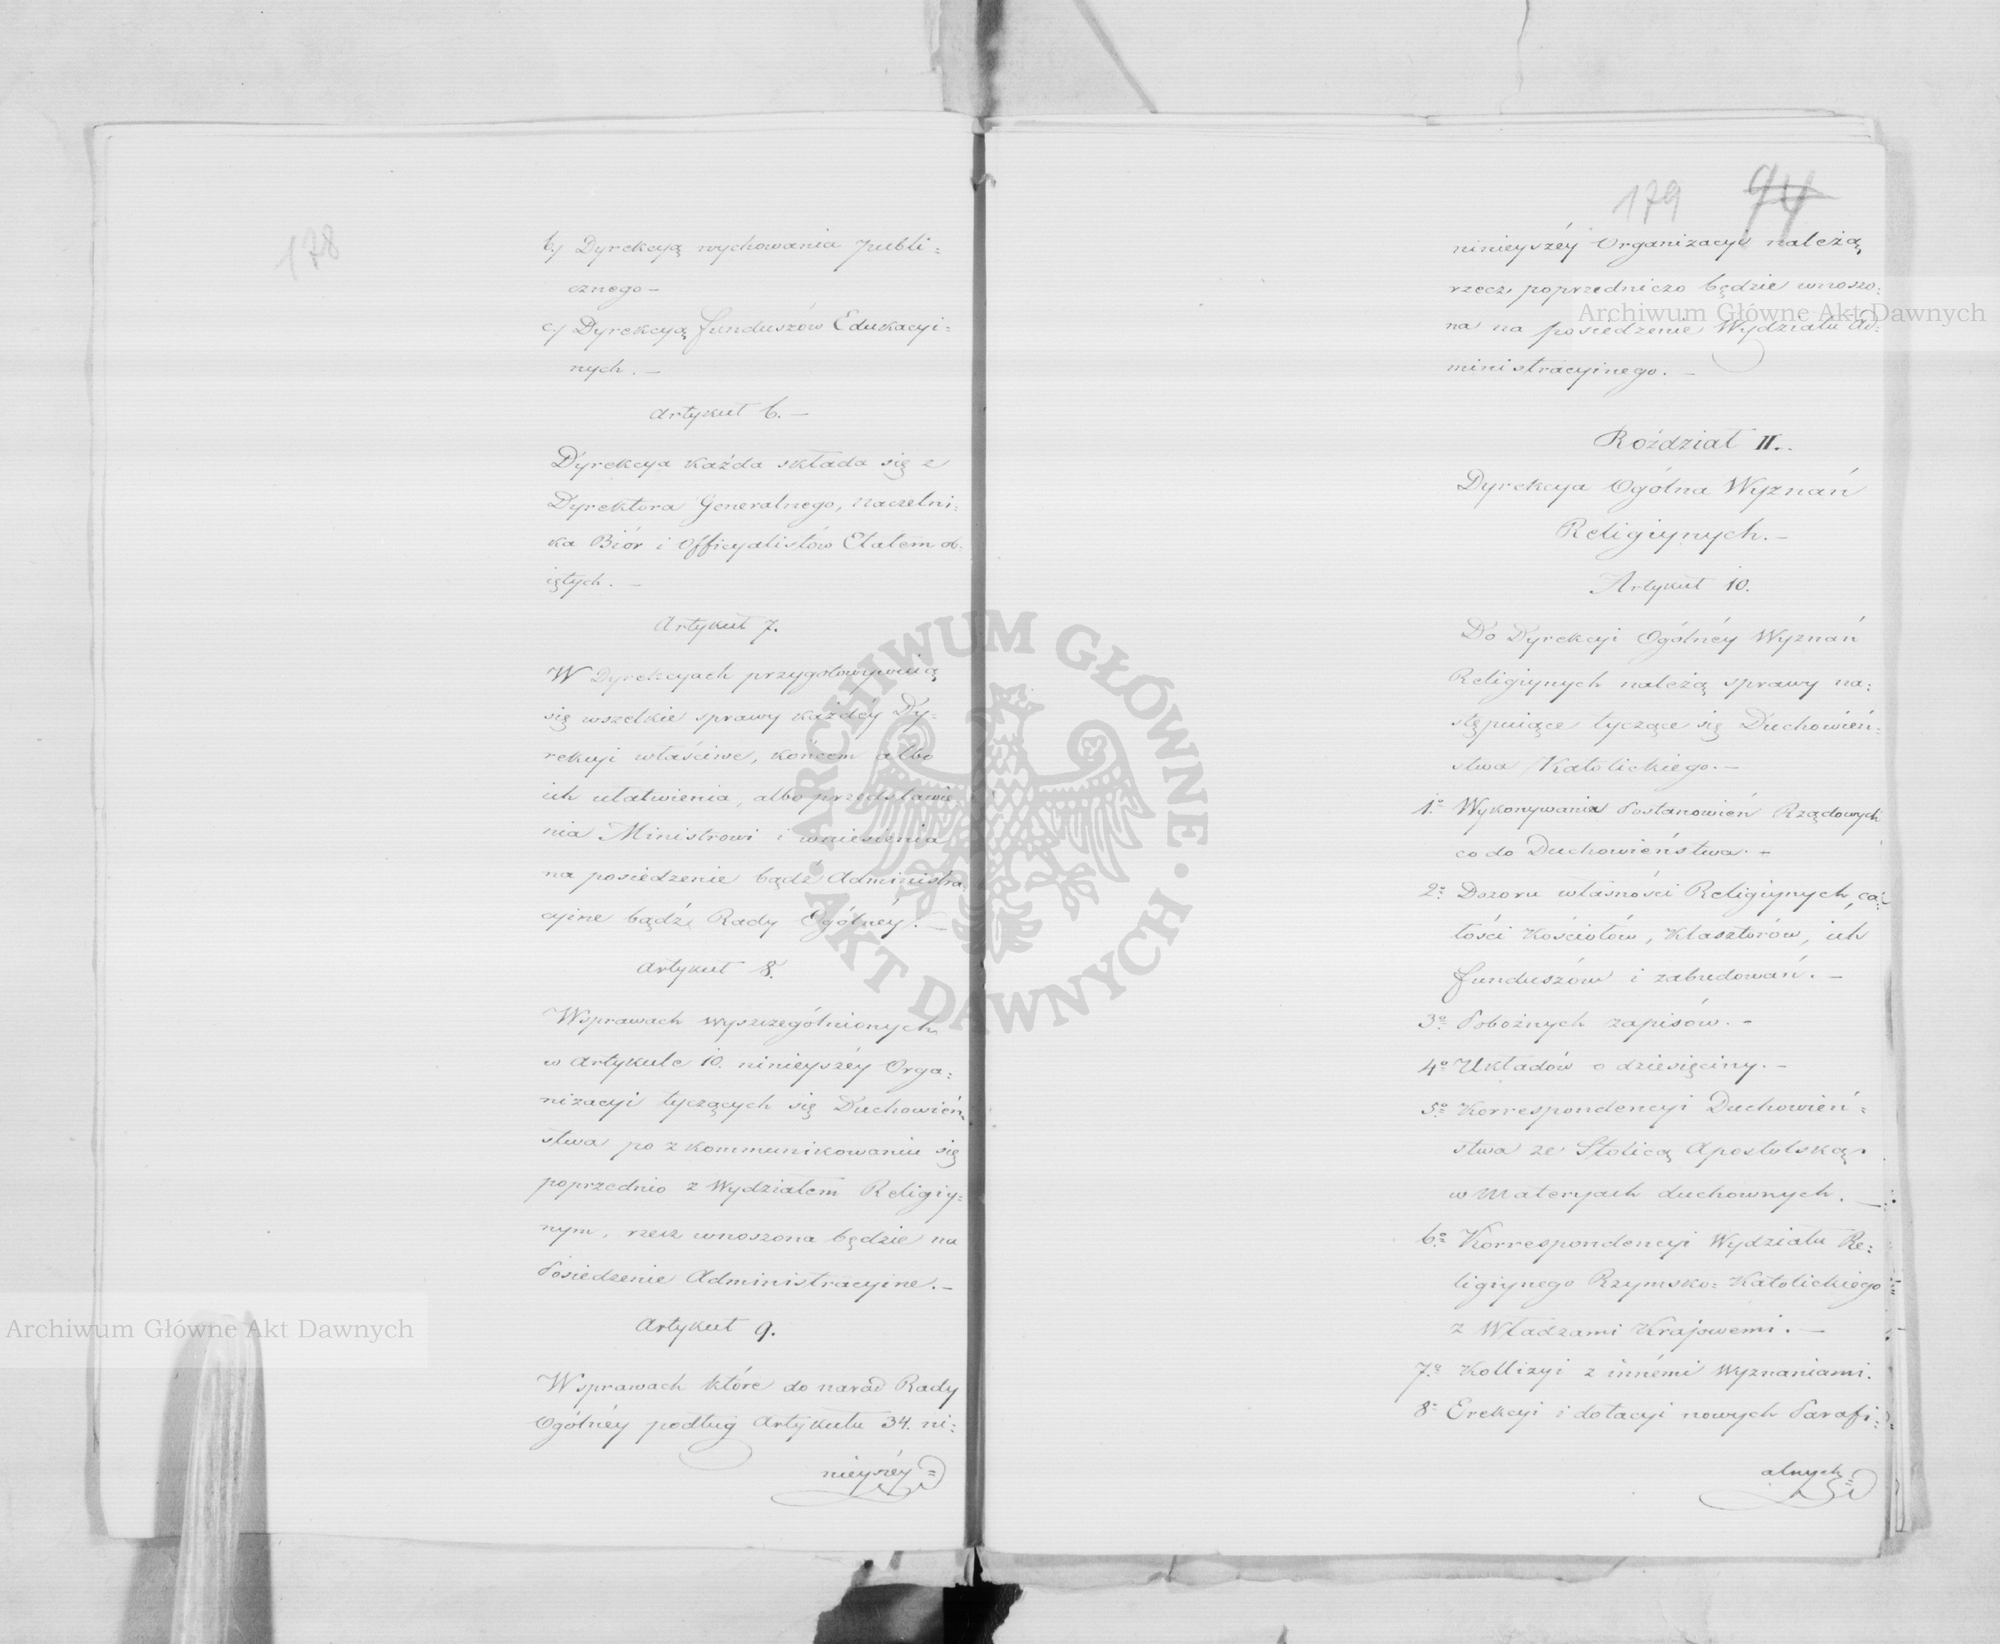 178
b) Dyrekcyą wychowania publi=
cznego –
c) Dyrekcyą funduszów Edukacyi=
nych. –
Artykuł 6. –
Dyrekcya każda składa się z
Dyrektora Generalnego, naczelni=
ka Biór i Officyalistów Etatem ob=
iętych. –
Artykuł 7.
W Dyrekcyach przygotowywuią
się wszelkie sprawy każdéy Dy=
rekcyi właściwe, końcem albo
ich ułatwienia, albo przedstawie
nia Ministrowi i wniesienia
na posiedzenie bądź Administra=
cyine bądź Rady Ogólnéy. –
Artykuł 8.
W sprawach wyszczególnionych
w Artykule 10. ninieyszéy Orga=
nizacyi tyczących się Duchowień=
stwa po zkommunikowaniu się
poprzednio z Wydziałem Religiy=
nym, rzecz wnoszona będzie na
Posiedzenie Administracyine. –
Artykuł 9.
W sprawach które do narad Rady
Ogólnéy podług Artykułu 34. ni=
nieyszéy =
179 94
ninieyszéy Organizacyi należą,
rzecz poprzedniczo będzie wnoszo=
na na posiedzenie Wydziału Ad=
ministracyinego. –
Roździał II.
Dyrekcya Ogólna Wyznań
Religiynych. –
Artykuł 10.
Do Dyrekcyi Ogólnéy Wyznań
Religiynych należą sprawy na=
stępuiące tyczące się Duchowień=
stwa Katolickiego. –
1º Wykonywania Postanowień Rządowych
co do Duchowieństwa. –
2º Dozoru własności Religiynych, ca=
łości Kościołów, Klasztorów, ich
funduszów i zabudowań. –
3º Pobożnych zapisów. –
4º Układów o dziesięciny. –
5º Korrespondencyi Duchowień=
stwa ze Stolicą Apostolską
w Materyach duchownych. –
6º Korrespondencyi Wydziału Re=
ligiynego Rzymsko=Katolickiego
z Władzami Krajowemi. –
7º Kollizyi z innémi Wyznaniami.
8º Erekcyi i dotacyi nowych Parafi=
alnych =
Archiwum Główne Akt Dawnych
Archiwum Główne Akt Dawnych
ARCHIWUM GŁÓWNE · AKT DAWNYCH ·